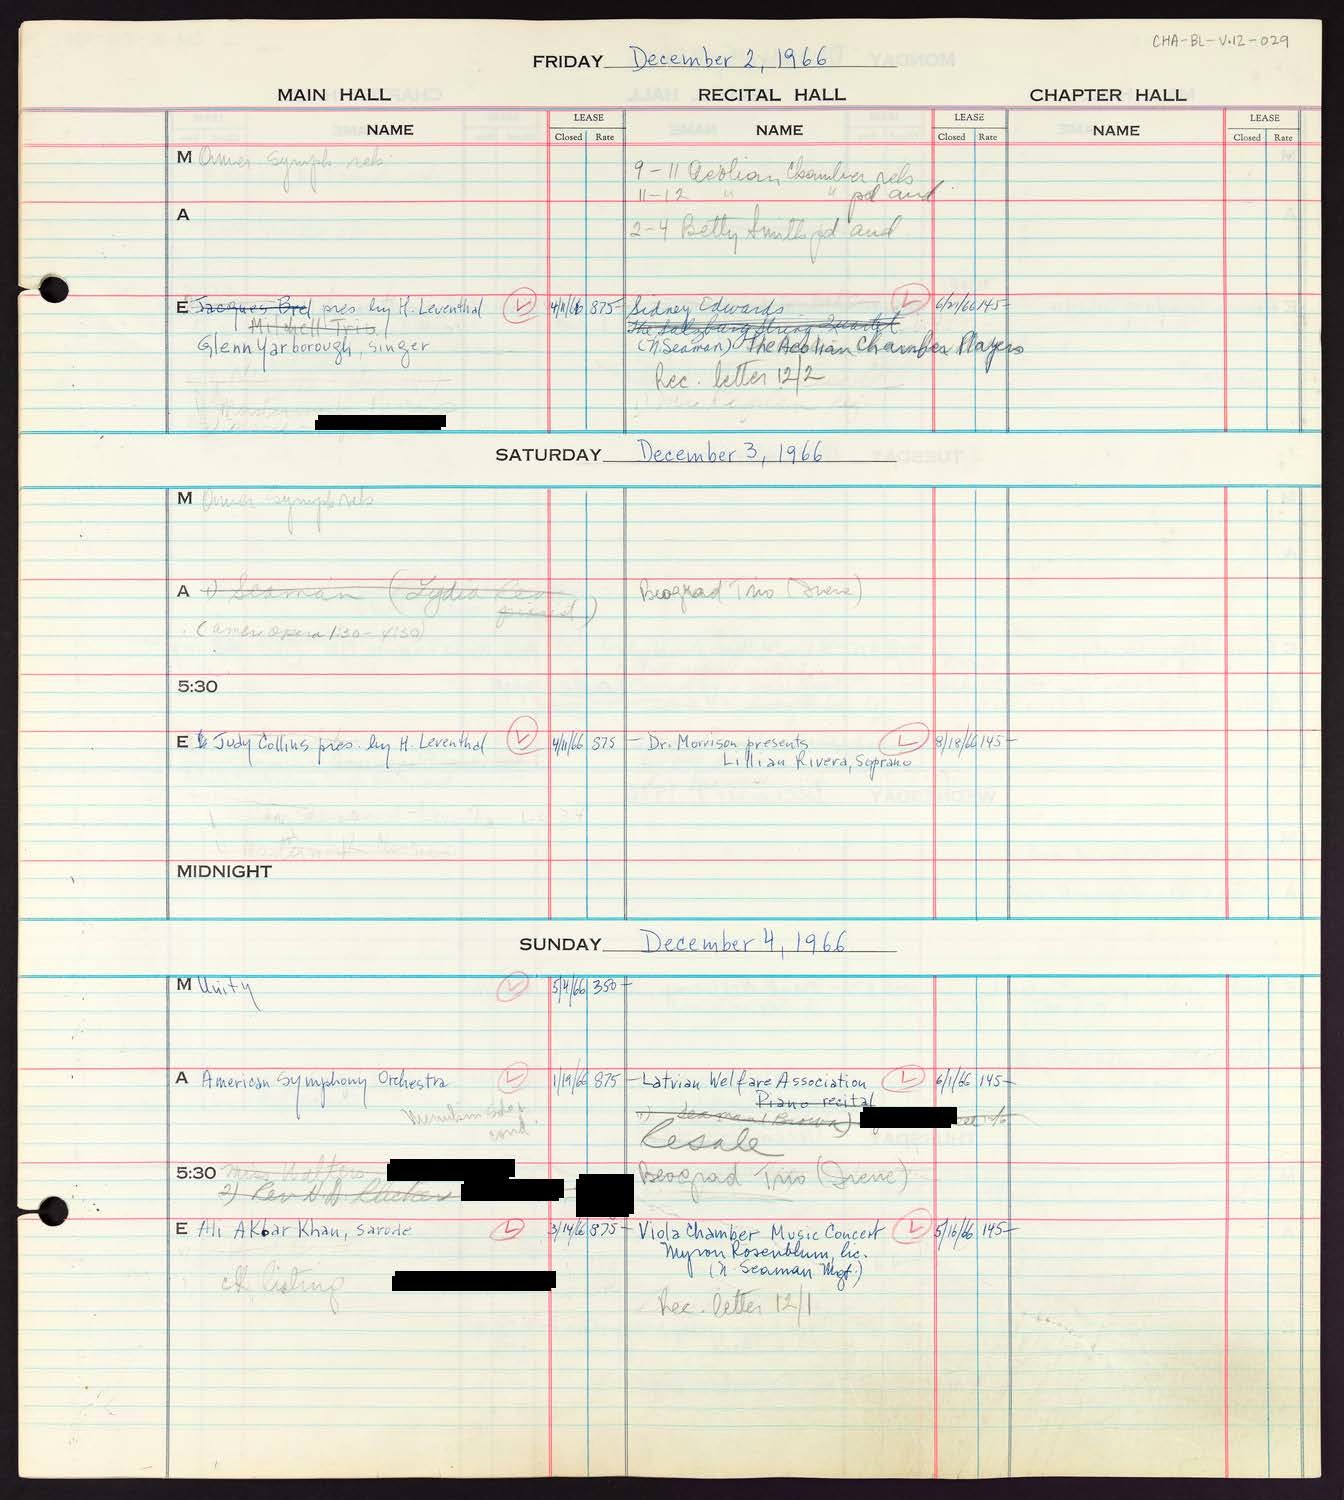 CHA-BL-V.12-029
FRIDAY December 2, 1966
MAIN HALL RECITAL HALL CHAPTER HALL
LEASE LEASE LEASE
NAME Closed Rate NAME Closed Rate NAME Closed Rate
M Amer. Symph. reh.
9-11 Aeolian Chamber reh
11-12 " " pd and
A
2-4 Betty Smith pd and
E Jacques Brel pres by H. Leventhal 4/11/66 875- Sidney Edwards 6/21/66 145-
Mitchell Trio The Salzburg String Quartet
Glenn Yarborough, singer (N. Seaman) The Aeolian Chamber Players
Rec. letter 12/2
SATURDAY December 3, 1966
M Amer Symph reh
A 1) Seaman (Lydia
pianist) Beograd Trio (Irene)
(amer opera 1:30-4:30)
5:30
E Judy Collins pres. by H. Leventhal 4/11/66 875- Dr. Morrison presents 8/18/66 145-
Lillian Rivera, Soprano
MIDNIGHT
SUNDAY December 4, 1966
M Unity 5/4/66 350-
A American Symphony Orchestra 1/19/66 875- Latvian Welfare Association 6/1/66 145-
Piano recital
1) Seaman (Brown)
cond. Resale
5:30 Miss Walters Beograd Trio (Irene)
2) Rev
E Ali Akbar Khan, sarode 3/14/66 875- Viola Chamber Music Concert 5/16/66 145-
Myron Rosenblum, lic.
(N. Seaman Mgt.)
ck listing
Rec. letter 12/1